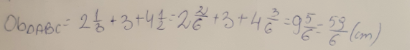 Ob△ABC = 2 1/3 + 3 + 4 1/2 = 2 2/6 + 3 + 4 3/6 = 9 5/6 = 59/6 (cm)